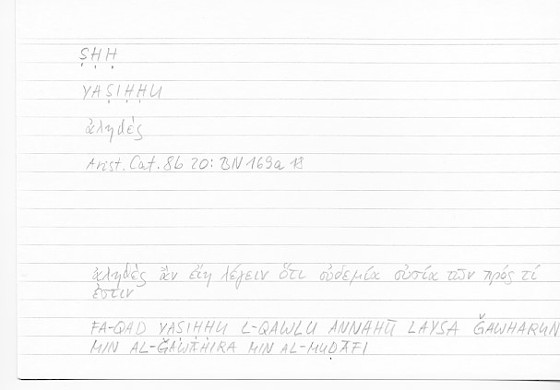 ṢḤḤ
YAṢIḤḤU
ἀληθές
Arist. Cat. 8b 20: BN 169a 18
ἀληθὲς ἂν εἴη λέγειν ὅτι οὐδεμία οὐσία τῶν πρός τί
ἐστιν
FA-QAD YAṢIḤḤU L-QAWLU ANNAHŪ LAYSA ǦAWHARUN
MIN AL-ǦAWĀHIRA MIN AL-MUḌĀFI